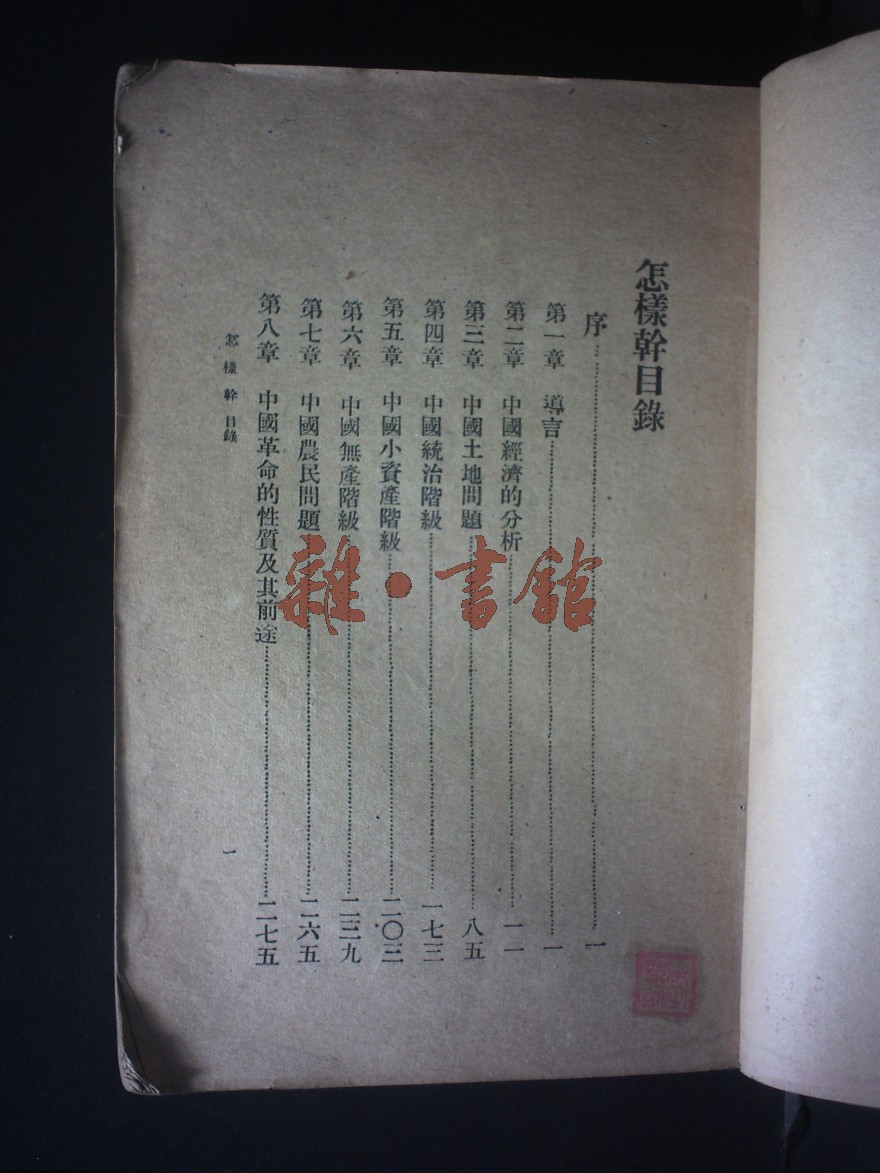 怎樣幹目錄
序……一
第一章　導言……一
第二章　中國經濟的分析……一一
第三章　中國土地問題……八五
第四章　中國統治階級……一七三
第五章　中國小資產階級……二〇三
第六章　中國無產階級……二三九
第七章　中國農民問題……二六五
第八章　中國革命的性質及其前途……二七五
怎樣幹　目錄　一
雜·書館